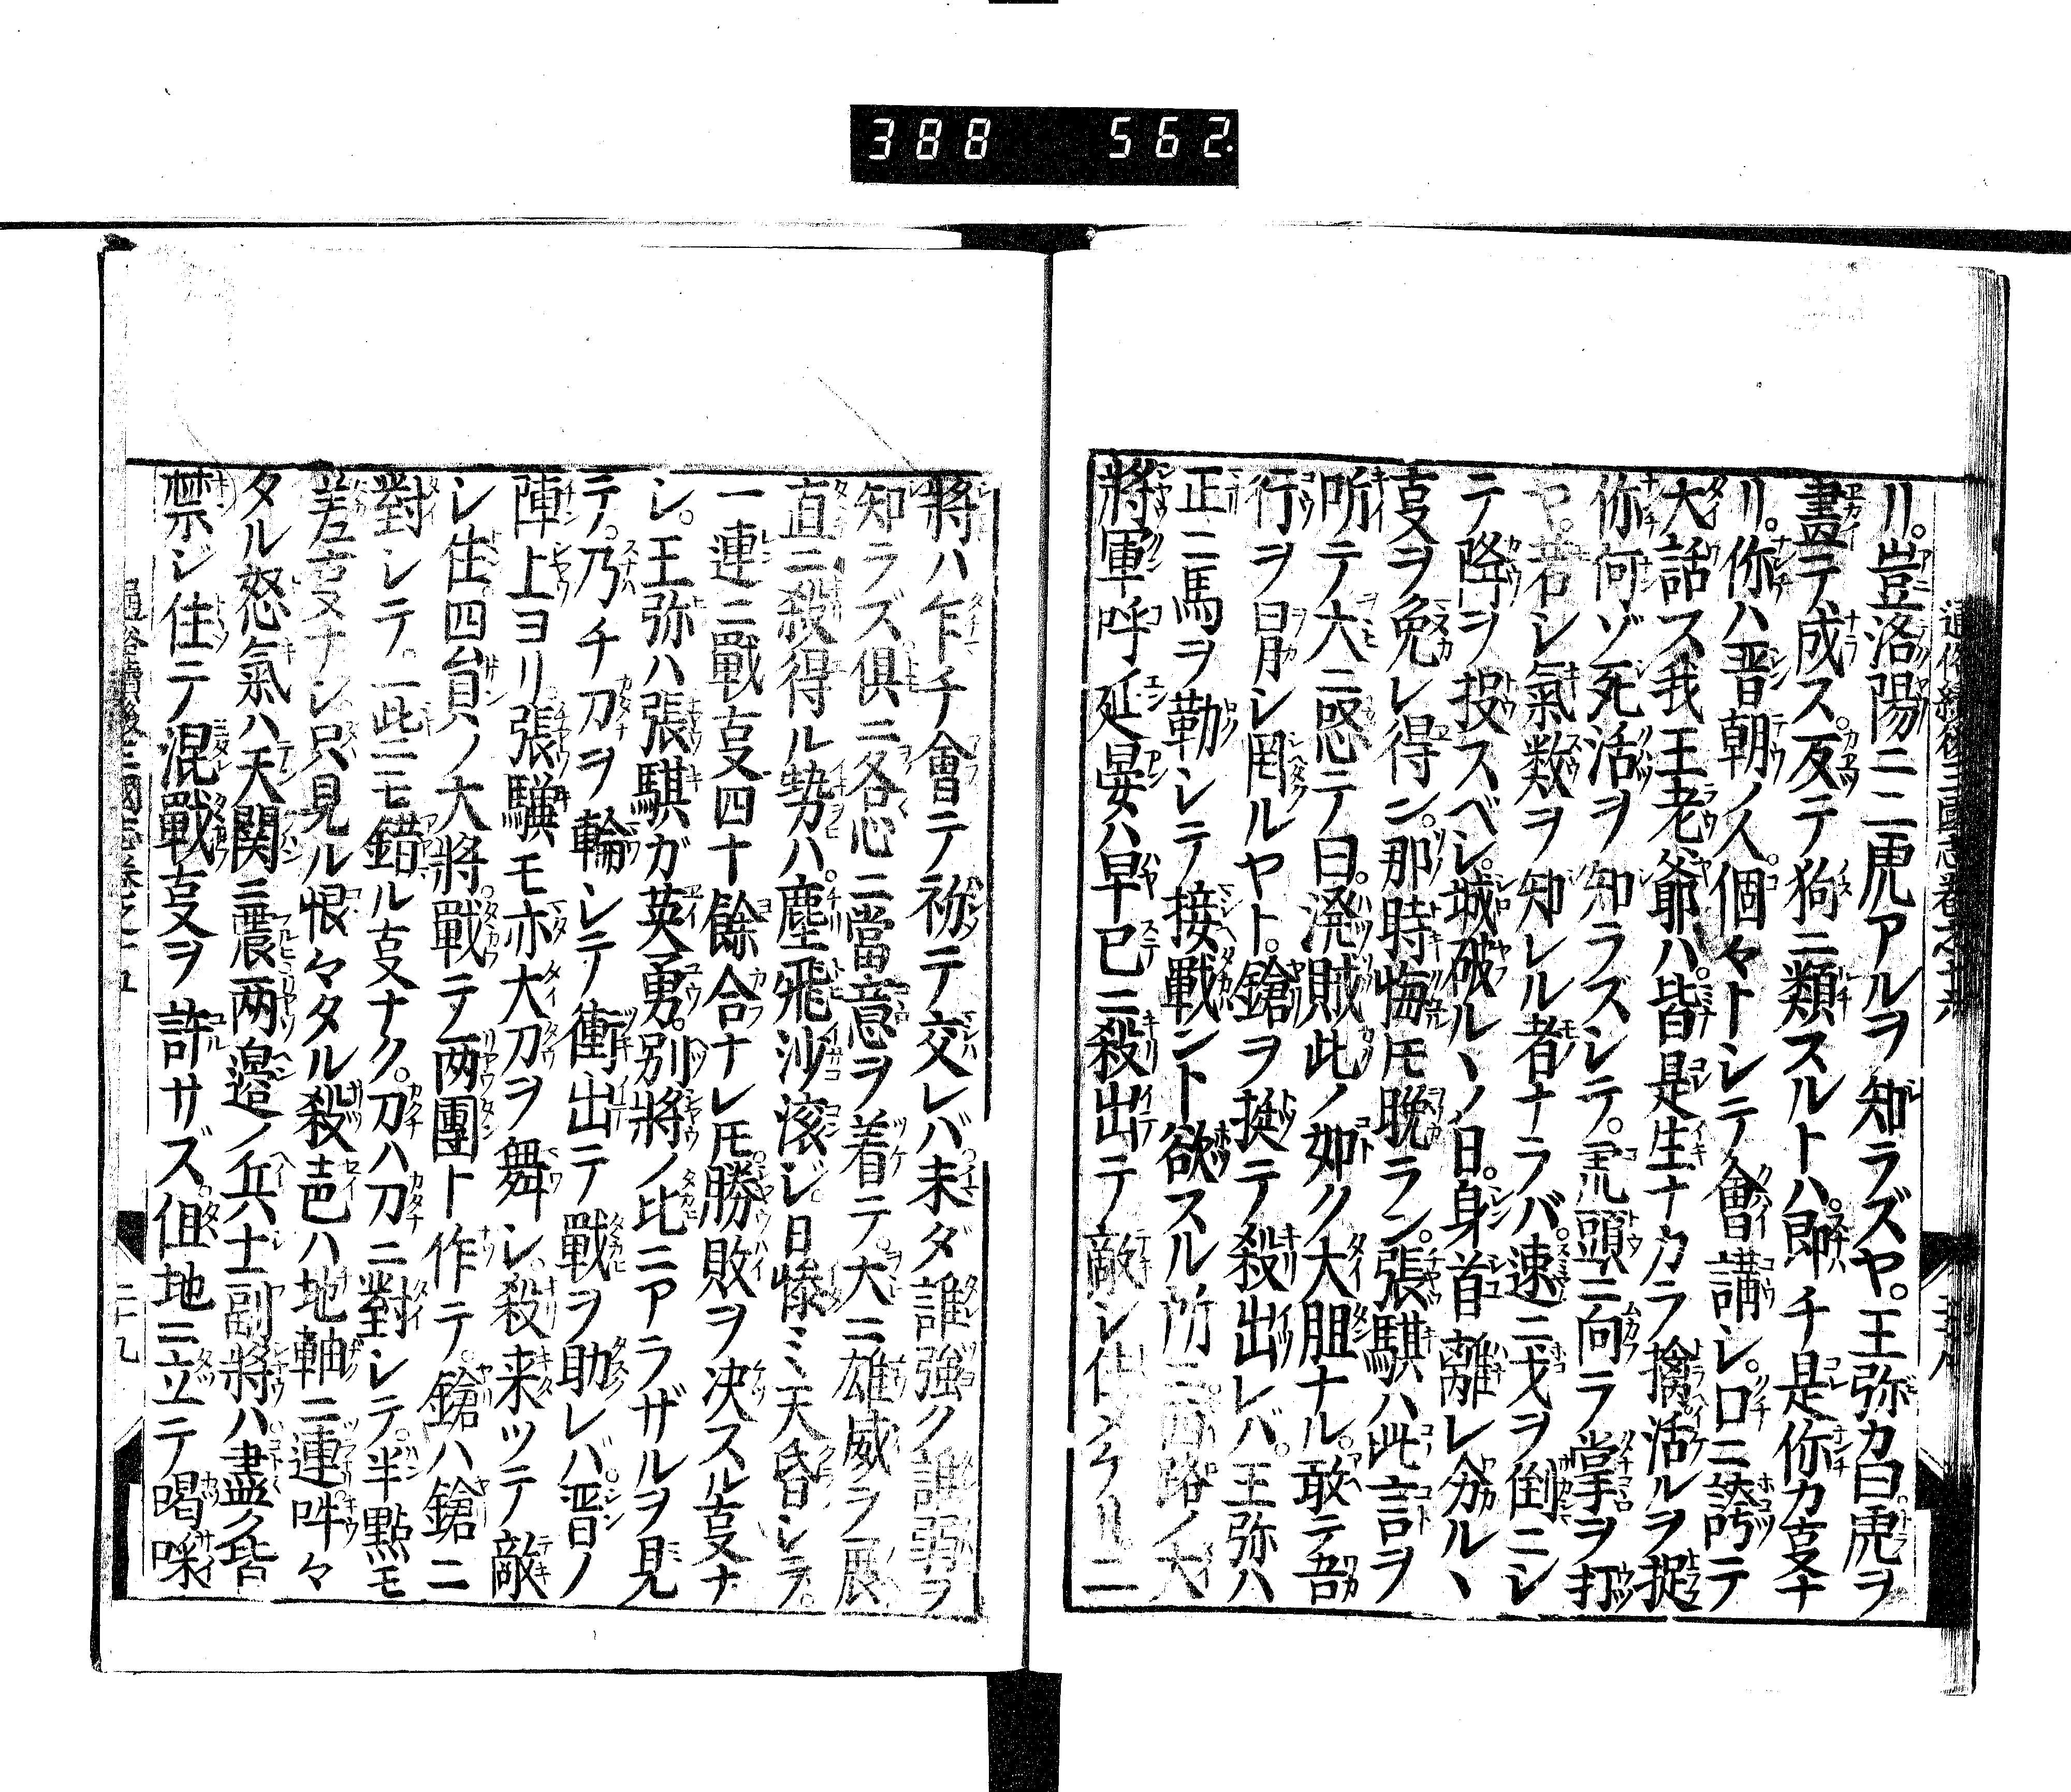 388 562.
リ。豈洛陽ニ二虎アルヲ知ラズヤ。王弥カ曰虎ヲ
畫テ成ス。反テ狗ニ類スルトハ。即チ是你カ叓ナ
リ。你ハ晋朝ノ人。個々トシテ會講シ。口ニ誇テ
大話ス我王老爺ハ。皆是生ナカラ擒活ルヲ捉
你何ゾ死活ヲ知ラズシテ。虎頭ニ向ラ掌ヲ打
ヤ。若シ氣数ヲ知レル者ナラバ。速ニ戈ヲ倒ニシ
テ降ヲ投スベシ。城破ルヽノ日。身首離レ分ルヽ
叓ヲ免レ得ン。那時悔モ晩ラン。張騏ハ此言ヲ
听テ大ニ怒テ曰。潑賊此ノ如ク大胆ナル。敢テ吾
行ヲ冐シ罔ルヤト。鎗ヲ挺テ殺出レバ。王弥ハ
正ニ馬ヲ勒シテ接戰ント欲スル所ニ西路ノ大
將軍呼延晏ハ早已ニ殺出テ敵シ住タリ。二
將ハ乍チ會テ初テ交レバ。未ダ誰強ク誰弱ヲ
知ラズ。俱ニ各忌ニ當意ヲ着テ。大ニ雄威ヲ展
直ニ殺得ル勢ハ。塵飛沙滾ジ。日慘ミ天昏シテ。
一連ニ戰叓四十餘合ナレ𪜈。勝敗ヲ决スル叓ナ
シ。王弥ハ張騏ガ英勇。別將ノ比ニアラザルヲ見
テ。乃チ刀ヲ輪シテ衝出テ戰ヲ助レバ。晋ノ
陣上ヨリ張驥モ亦大刀ヲ舞シ。殺来ツテ敵
シ住。四員ノ大將。戰テ両團ト作テ。鎗ハ鎗ニ
對シテ。一些ニモ錯ル叓ナク。刀ハ刀ニ對シテ。半點モ
差叓ナシ只見ル恨々タル殺声ハ地軸ニ連。吽々
タル怒氣ハ天関ニ震。両邉ノ兵士副將ハ。盡ク皆
禁ジ住テ混戰叓ヲ許サズ。但地ニ立テ喝采